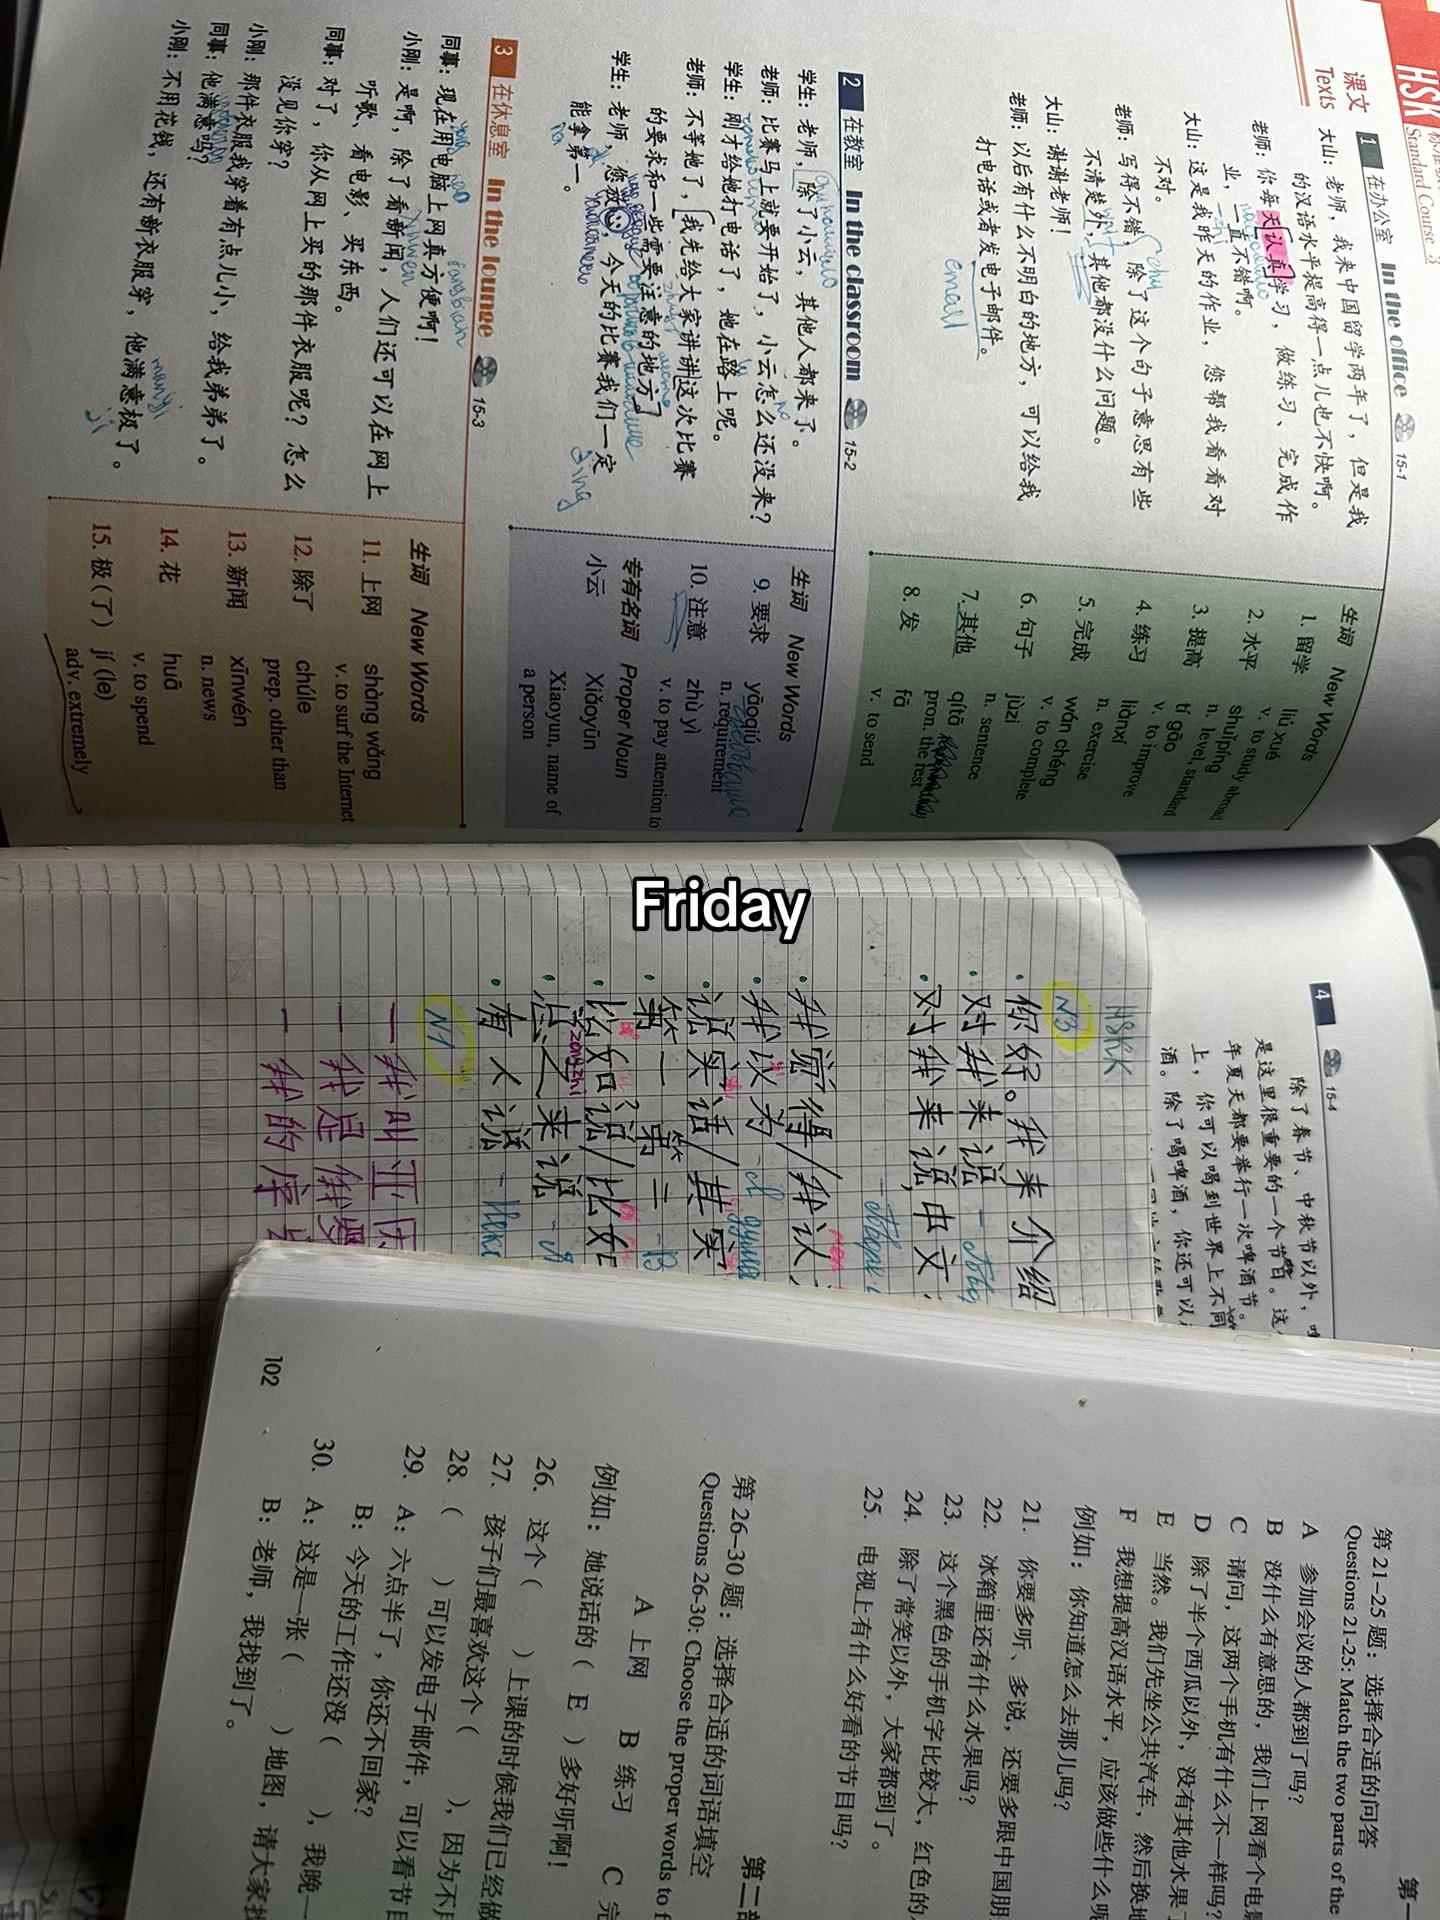 HSK 标准教程 3
Standard Course 3
课文
Texts
1 在办公室 In the office 15-1
大山：老师，我来中国留学两年了，但是我
的汉语水平提高得一点儿也不快啊。
老师：你每天认真学习，做练习、完成作
业，一直不错啊。
大山：这是我昨天的作业，您帮我看看对
不对。
老师：写得不错，除了这个句子意思有些
不清楚外，其他都没什么问题。
大山：谢谢老师！
老师：以后有什么不明白的地方，可以给我
打电话或者发电子邮件。
email
生词 New Words
1. 留学 liú xué
v. to study abroad
2. 水平 shuǐpíng
n. level, standard
3. 提高 tí gāo
v. to improve
4. 练习 liànxí
n. exercise
5. 完成 wán chéng
v. to complete
6. 句子 jùzi
n. sentence
7. 其他 qítā
pron. the rest
8. 发 fā
v. to send
2 在教室 In the classroom 15-2
学生：老师，除了小云，其他人都来了。
老师：比赛马上就要开始了，小云怎么还没来？
学生：刚才给她打电话了，她在路上呢。
老师：不等她了，我先给大家讲讲这次比赛
的要求和一些需要注意的地方。
学生：老师，您放心，今天的比赛我们一定
能拿第一。
ding
na
生词 New Words
9. 要求 yāoqiú
n. requirement
10. 注意 zhù yì
v. to pay attention to
专有名词 Proper Noun
小云 Xiǎoyún
Xiaoyun, name of
a person
3 在休息室 In the lounge 15-3
同事：现在用电脑上网真方便啊！
fangbian
小刚：是啊，除了看新闻，人们还可以在网上
听歌、看电影、买东西。
同事：对了，你从网上买的那件衣服呢？怎么
没见你穿？
小刚：那件衣服我穿着有点儿小，给我弟弟了。
同事：他满意吗？
小刚：不用花钱，还有新衣服穿，他满意极了。
manyi
ji
生词 New Words
11. 上网 shàng wǎng
v. to surf the Internet
12. 除了 chúle
prep. other than
13. 新闻 xīnwén
n. news
14. 花 huā
v. to spend
15. 极（了） jí (le)
adv. extremely
Friday
4 15-4
除了春节、中秋节以外，啤
是这里很重要的一个节日。这
年夏天都要举行一次啤酒节。
上，你可以喝到世界上不同
酒。除了喝啤酒，你还可以
HSKK
N3
你好。我来介绍
对我来说
对我来说，中文
我觉得/我认
我以为 - я думал
说实话/其实
第一 第二
比如说/比如
总之来说
zongzhi
有人说
N1
一 我叫
一 我是俄罗
一 我的
102
第一
第 21–25 题：选择合适的问答
Questions 21-25: Match the two parts of the
A 参加会议的人都到了吗？
B 没什么有意思的，我们上网看个电影
C 请问，这两个手机有什么不一样吗？
D 除了半个西瓜以外，没有其他水果了
E 当然。我们先坐公共汽车，然后换地
F 我想提高汉语水平，应该做些什么呢
例如：你知道怎么去那儿吗？
21. 你要多听、多说，还要多跟中国朋
22. 冰箱里还有什么水果吗？
23. 这个黑色的手机字比较大，红色的
24. 除了常笑以外，大家都到了。
25. 电视上有什么好看的节目吗？
第二部
第 26–30 题：选择合适的词语填空
Questions 26-30: Choose the proper words to f
A 上网 B 练习 C 完
例如：她说话的（ E ）多好听啊！
26. 这个（ ）上课的时候我们已经做
27. 孩子们最喜欢这个（ ），因为不
28. （ ）可以发电子邮件，可以看节目
29. A：六点半了，你还不回家？
B：今天的工作还没（ ），我晚一
30. A：这是一张（ ）地图，请大家找
B：老师，我找到了。